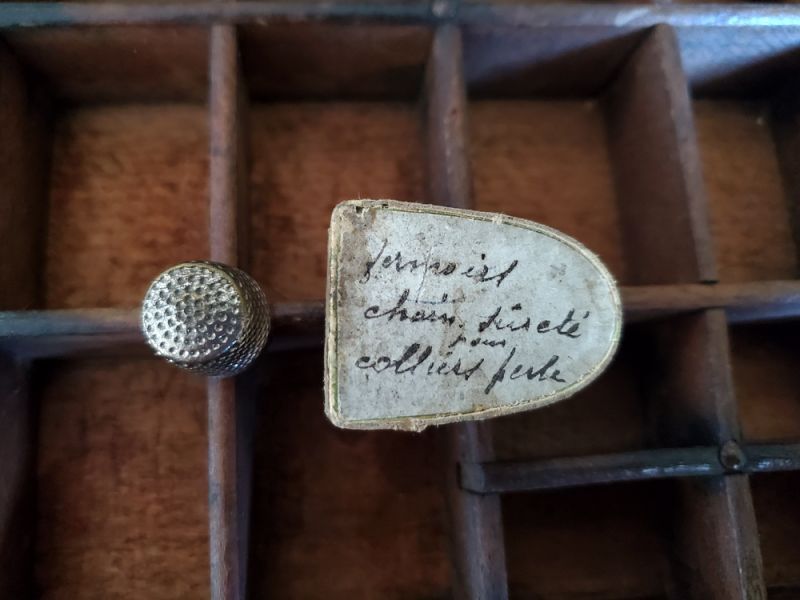 fermoirs
chain. sûreté
pour
colliers perle